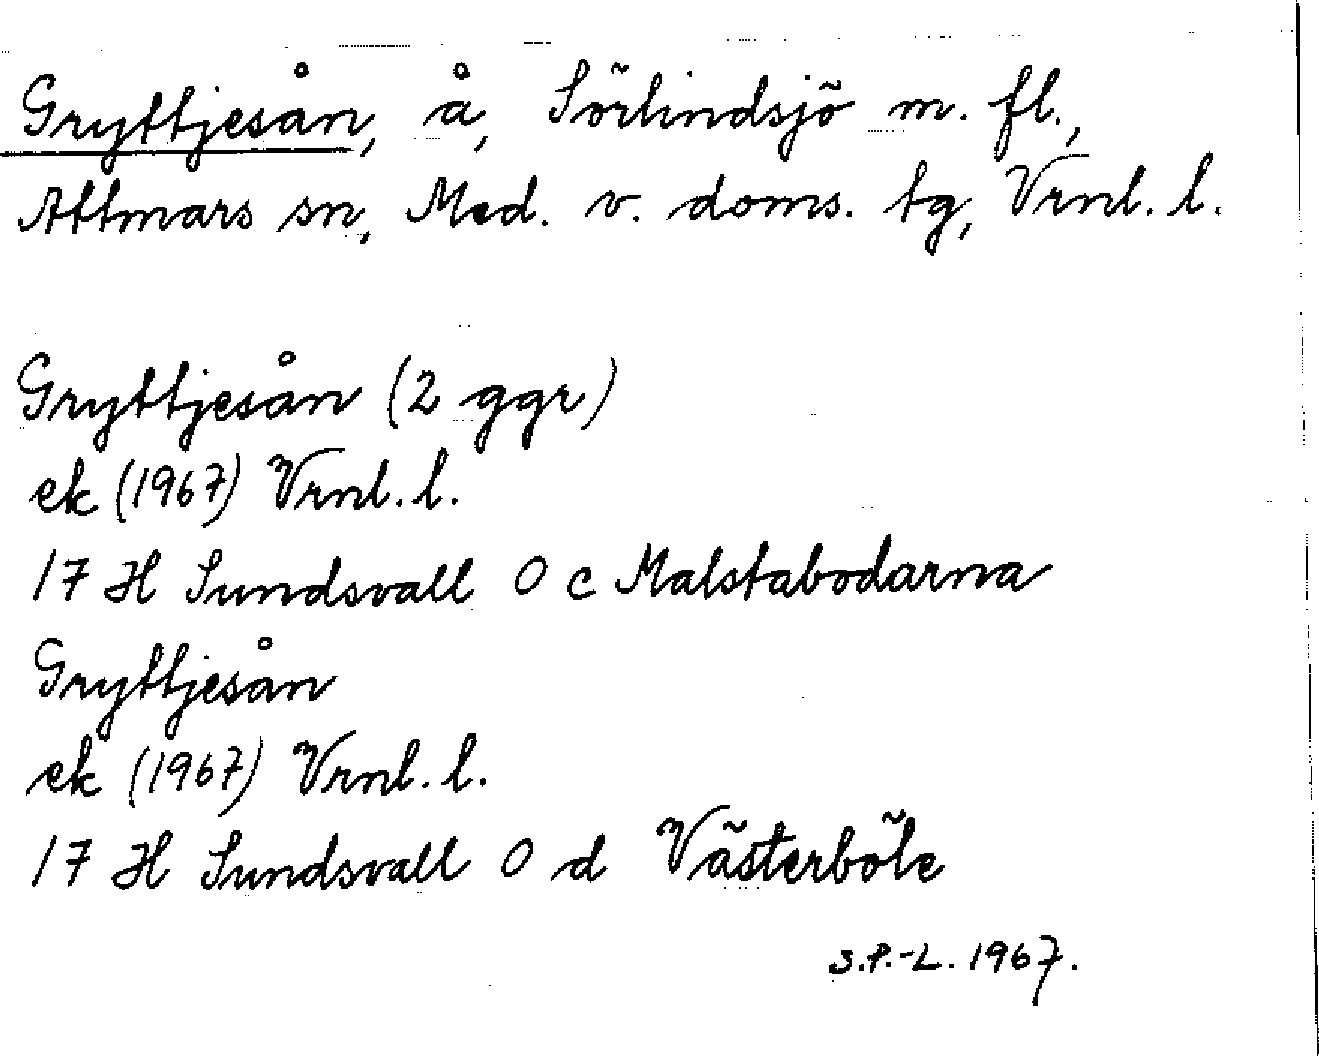 Gryttjesån, å, Sörlindsjö m. fl.,
Attmars sn, Med. v. doms. tg, Vrnl. l.
Gryttjesån (2 ggr)
ek (1967) Vrnl. l.
17 H Sundsvall 0 c Malstabodarna
Gryttjesån
ek (1967) Vrnl. l.
17 H Sundsvall 0 d Västerböle
S.P.-L. 1967.